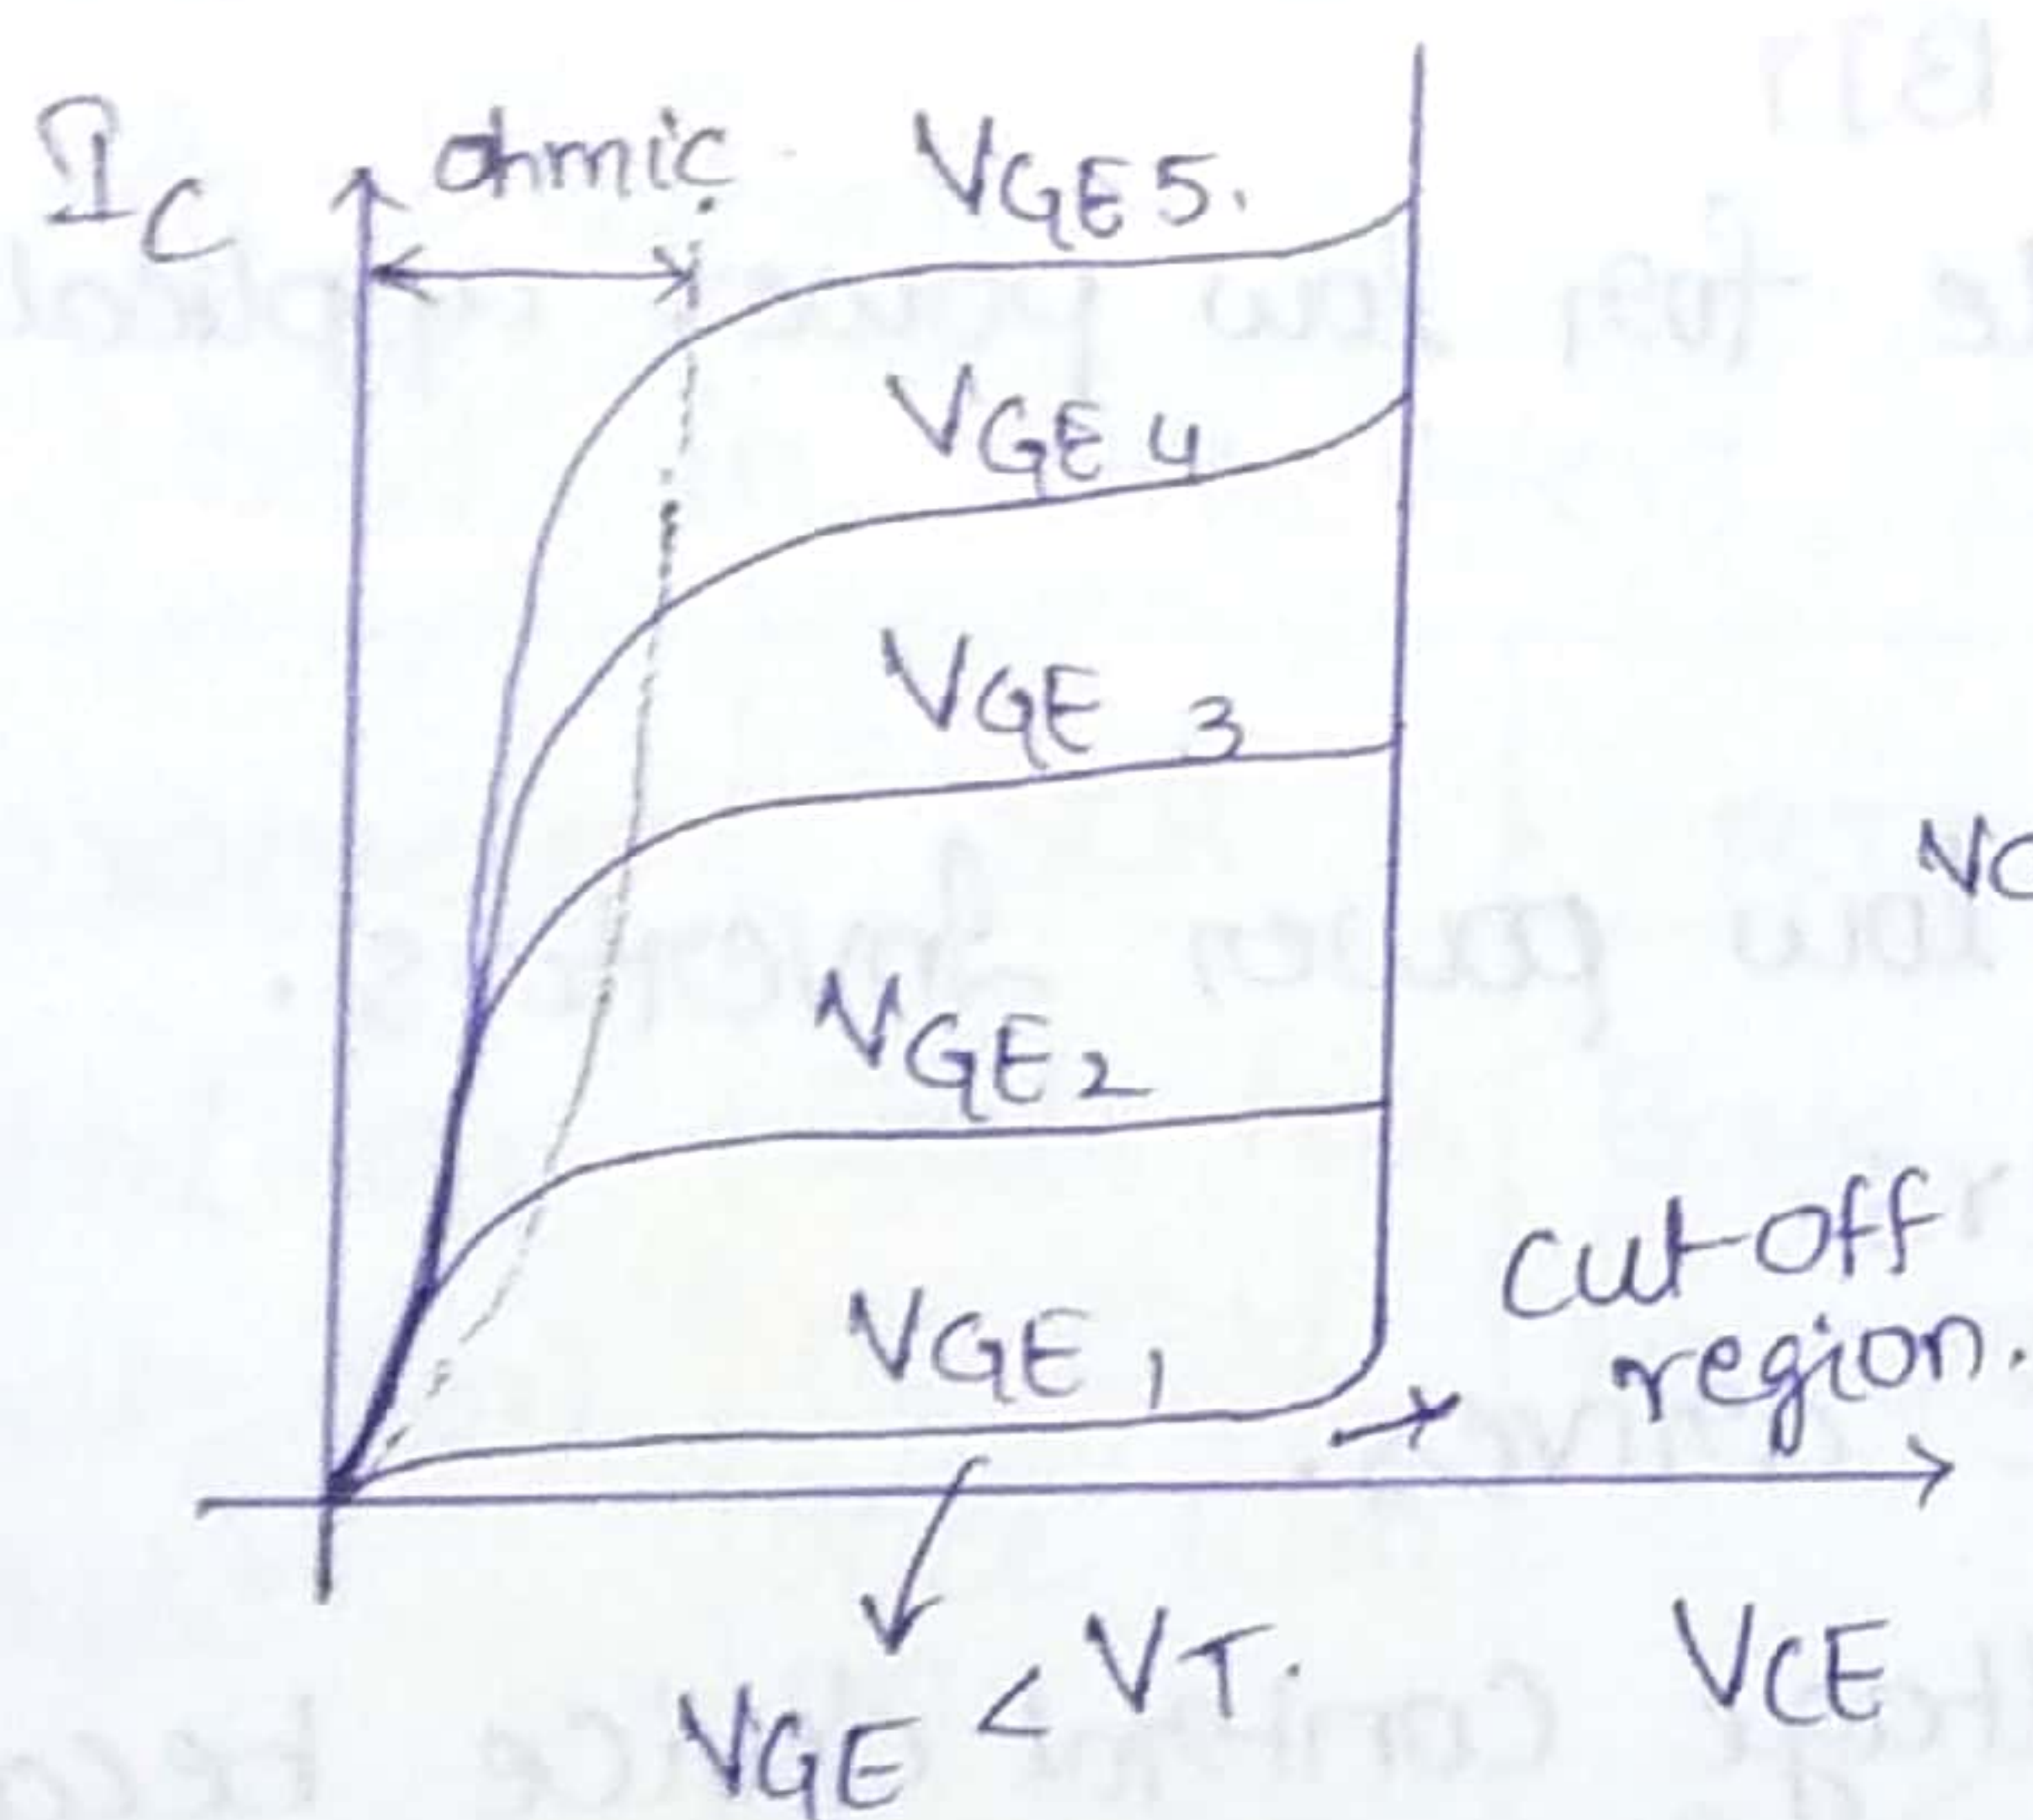 IC
ohmic.
VGE5.
VGE 4
VGE 3
VGE2
VGE1
cut-off
region.
VGE < VT.
VCE